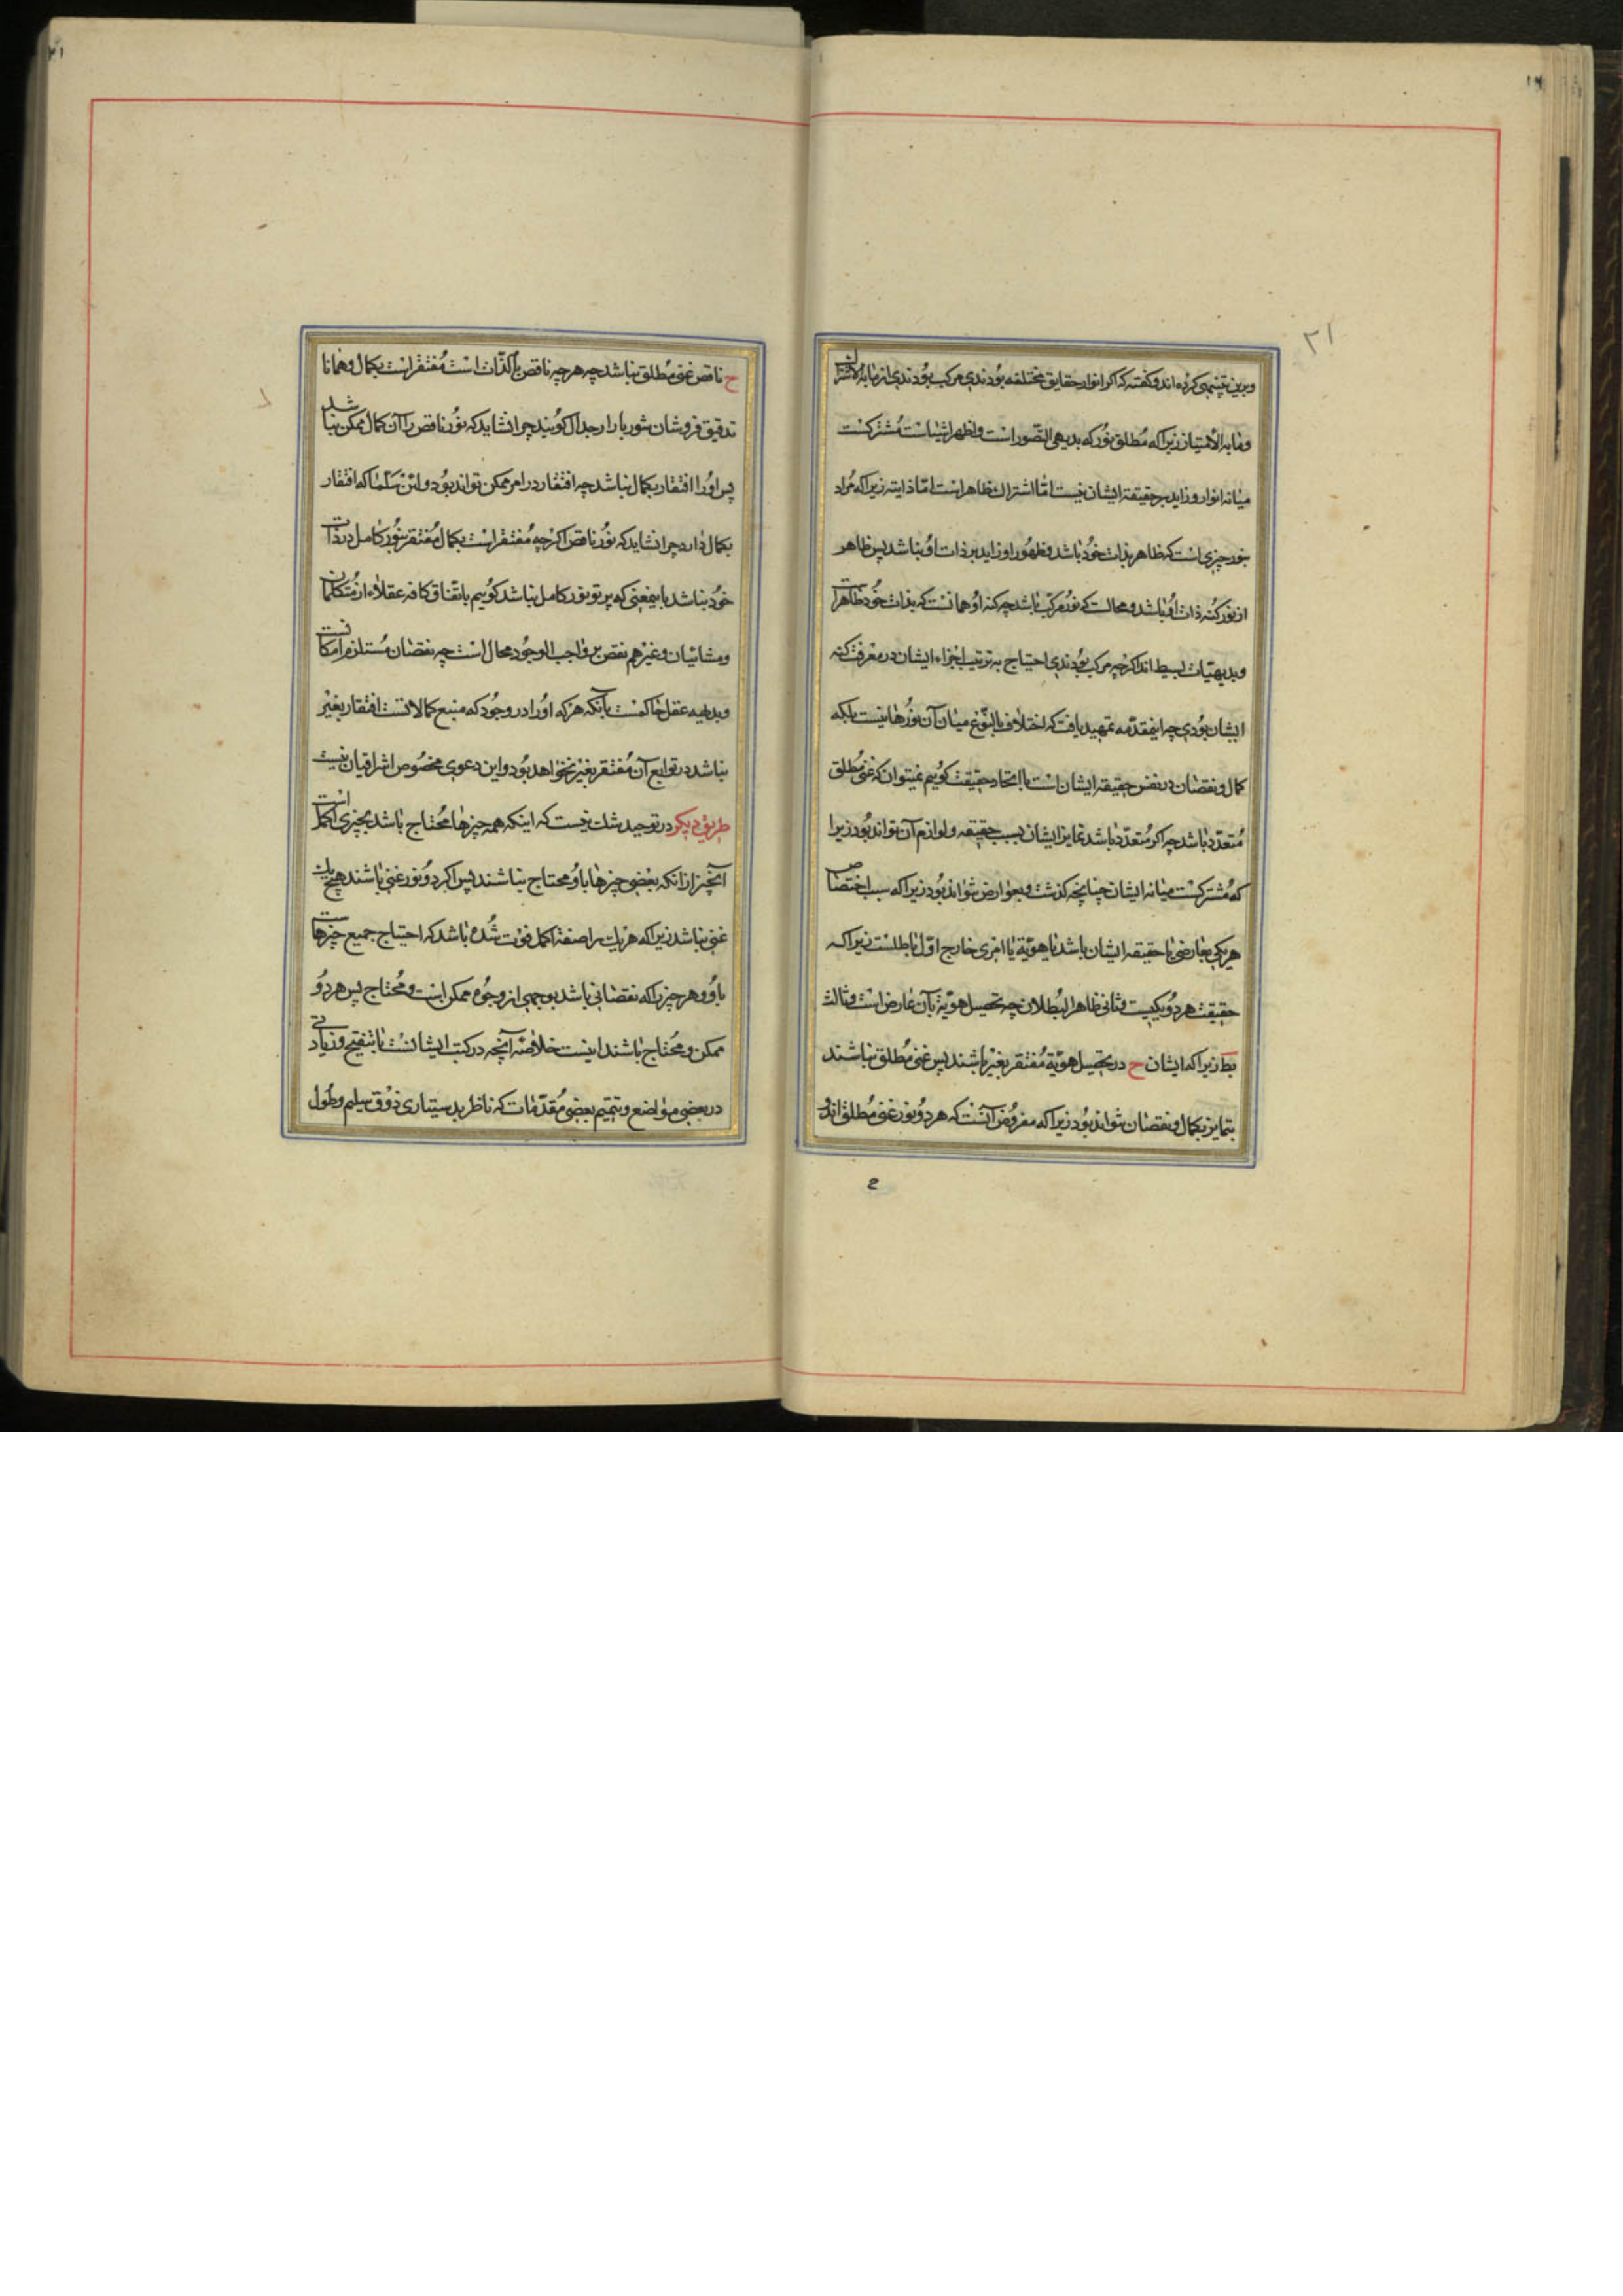 ۲۱
وبرین تنبیهی کرده اند وکفته که اکر انوار حقایق مختلفه بودندی مرکب بودندی از مابه الاشتراک
ومابه الامتیاز زیرا که مطلق نور که بدیهی التصور است واظهر اشیاست مشترکست
میانه انوار وزاید بر حقیقة ایشان نیست امّا اشتراک ظاهر است امّا ذاتیة زیرا که مراد
بنور چیزی است که ظاهر بذات خود باشد وظهور او زاید بر ذات او نباشد پس ظاهر
از نور کنه ذات او باشد ومحالست که نور مرکب باشد چه کنه او همانست که بذات خود ظاهر است
وبدیهیّات بسیط اند اکرچه مرکب بودندی احتیاج به ترتیب اجزاء ایشان در معرفت کنه
ایشان بودی چه اینمقدّمه تمهید یافت که اختلاف بالنّوع میان آن نورها نیست بلکه
کمال ونقصان در نفس حقیقة ایشان است با اتحاد حقیقت کوییم نمیتوان که غنی مطلق
متعدّد باشد چه اکر متعدّد باشد تمایز ایشان بسبب حقیقه ولوازم آن نتواند بود زیرا
که مشترکست میانه ایشان چنانچه کذشت وبعوارض نتواند بود زیرا که سبب اختصاص
هریکی بعارضی یا حقیقه ایشان باشد یا هویّة یا امری خارج اوّل باطلست زیرا که
حقیقت هر دو یکیست وثانی ظاهر البطلان چه تحصیل هویّة بآن عارض است وثالث
نیز زیرا که ایشان ح در تحصیل هویّة مفتقر بغیر باشند پس غنی مطلق نباشند
بتمایز بکمال ونقصان نتواند بود زیرا که مفروض آنست که هر دو نور غنی مطلق اند و
ح ناقص غنی مطلق نباشد چه هرچه ناقص بالذّات است مفتقر است بکمال وهمانا
تدقیق فروشان شوربازار جدال کویند چرا نشاید که نور ناقص را آن کمال ممکن نباشد
پس اورا افتقار بکمال نباشد چه افتقار در امر ممکن تواند بود ولئن سلّمنا که افتقار
بکمال دارد چرا نشاید که نور ناقص اکرچه مفتقر است بکمال مفتقر بنور کامل در ذات
خود نباشد بایمعنی که پرتو نور کامل نباشد کوییم باتّفاق کافه عقلاء از متکلمان
ومشائیان وغیرهم نقص بر واجب الوجود محال است چه نقصان مستلزم امکانست
وبدیهه عقل حاکمست بآنکه هرکه اورا در وجود که منبع کمالاتست افتقار بغیر
نباشد در توابع آن مفتقر بغیر نخواهد بود واین دعوی مخصوص اشراقیان نیست
طریق دیکر در توحید شک نیست که اینکه همه چیزها محتاج باشد بچیزی اکمل است
آنچیز از انکه بعضی چیزها باو محتاج نباشند پس اکر دو نور غنی باشند هیچ یک
غنی نباشد زیرا که هر یک را صفة اکمل فوت شده باشد که احتیاج جمیع چیزهاست
باو وهر چیز را که نقصانی باشد بوجهی از وجوه ممکن است ومحتاج پس هر دو
ممکن ومحتاج باشند اینست خلاصه آنچه در کتب ایشانست با تنقیح وزیادتی
در بعضی مواضع وتتمیم بعضی مقدّمات که ناظر بدستیاری ذوق سلیم وطول